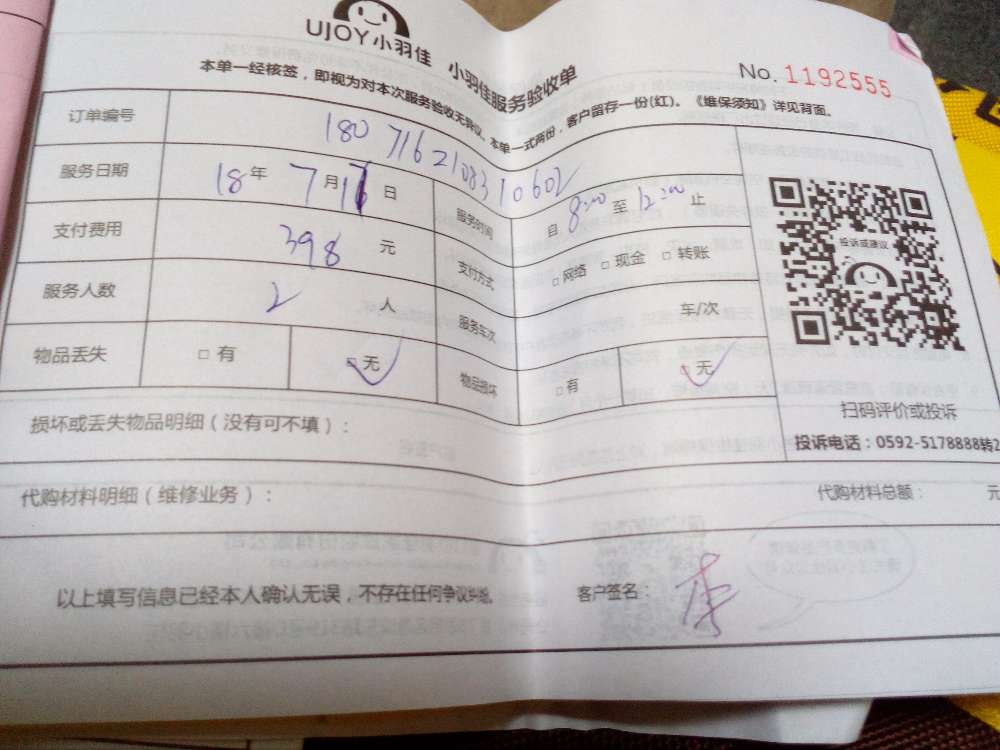 UJOY小羽佳 小羽佳服务验收单
No. 1192555
本单一经核签，即视为对本次服务验收无异议。本单一式两份，客户留存一份(红)。《维保须知》详见背面。
订单编号 180716210831 0602
服务日期 18年 7月17日 服务时间 自 8:00 至 12:00 止
支付费用 398 元 支付方式 □网络 □现金 □转账
服务人数 2 人 服务车次 车/次
物品丢失 □有 □无 物品损坏 □有 □无
投诉或建议
扫码评价或投诉
投诉电话：0592-5178888转2
损坏或丢失物品明细（没有可不填）：
代购材料明细（维修业务）： 代购材料总额： 元
以上填写信息已经本人确认无误，不存在任何争议纠纷。 客户签名：